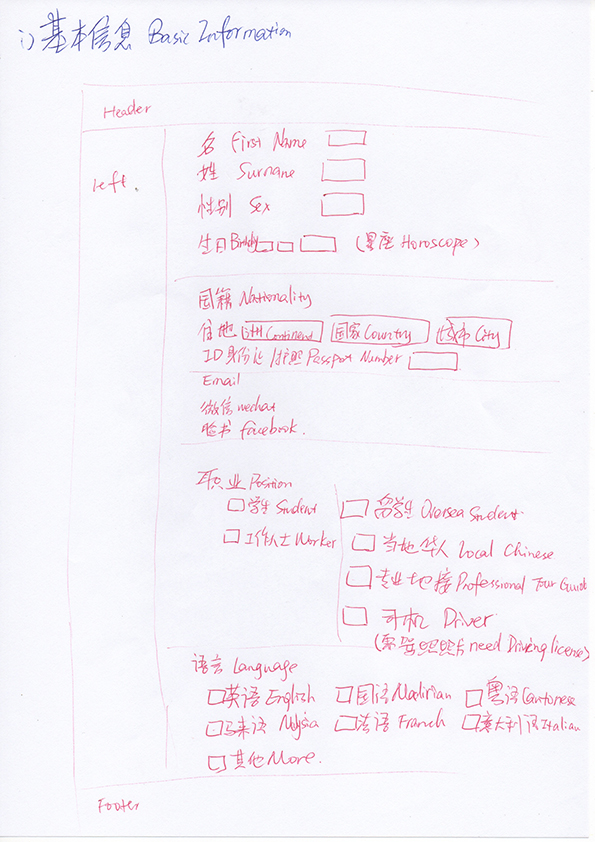 1) 基本信息 Basic Information
Header
left.
名 First Name
姓 Surname
性别 Sex
生日 Birthday (星座 Horoscope)
国籍 Nationality
住地 洲 Continent 国家 Country 城市 City
ID 身份证 / 护照 Passport Number
Email
微信 wechat
脸书 facebook.
职业 Position
学生 Student
工作人士 Worker
留学生 Oversea Student.
当地华人 Local Chinese
专业地接 Professional Tour Guid
司机 Driver
(需要照片 need Driving license)
语言 Language
英语 English 国语 Madirian 粤语 Cantonese
马来语 Malysia 法语 Franch 意大利语 Italian
其他 More.
Footer